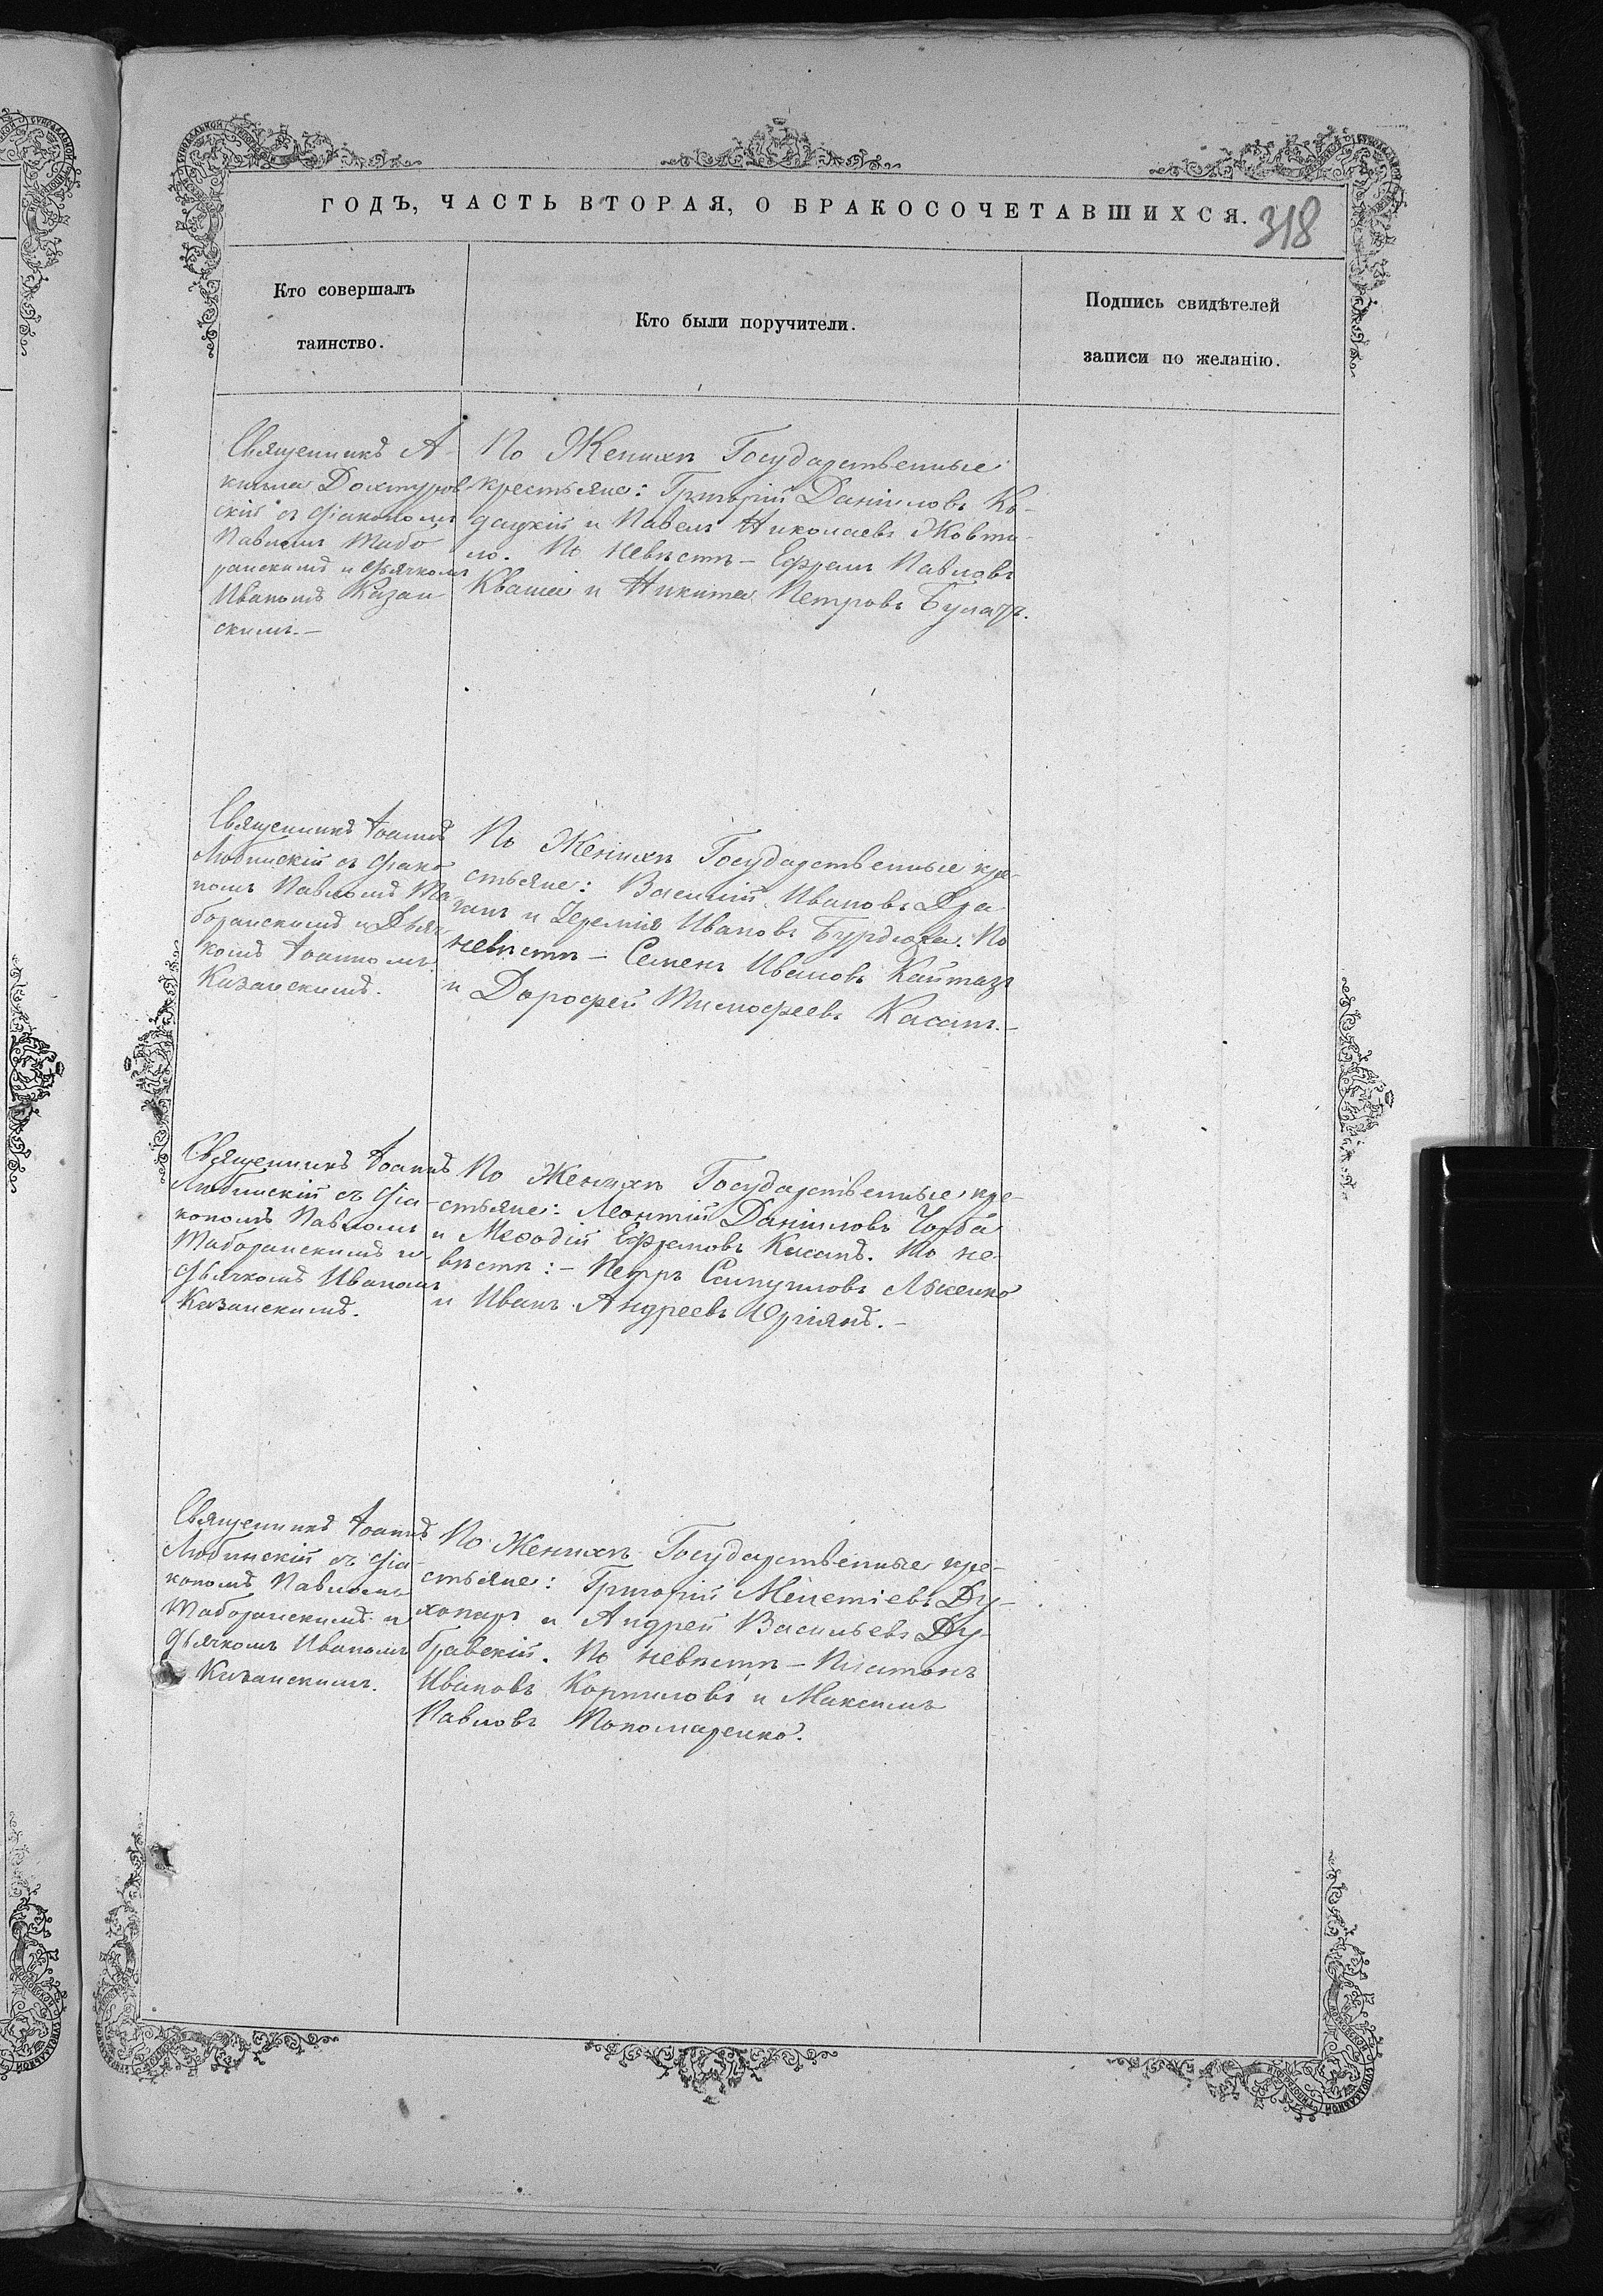 ГОДЪ, ЧАСТЬ ВТОРАЯ, О БРАКОСОЧЕТАВШИХСЯ.
318
Кто совершалъ
таинство.
Кто были поручители.
Подпись свидѣтелей
записи по желанію.
Священникъ А-
кила Дохтуров
скій съ діакономъ
Павломъ Табо
ранскимъ и дьячкомъ
Иваномъ Казан
скимъ.—
По Женихѣ Государственные
крестьяне: Григорій Даніиловъ Ко-
дацкій и Павелъ Николаевъ Жовти-
ло. По невѣстѣ — Ефремъ Павловъ
Кваша и Никита Петровъ Булатъ.
Священникъ Іоаннъ
Любинскій съ діако
номъ Павломъ Та
боранскимъ и Дьяч
комъ Іоанномъ
Казанскимъ.
По Женихѣ Государственные кре-
стьяне: Василій Ивановъ Дра
ганъ и Іеремія Ивановъ Бурдюжа. По
невѣстѣ — Семенъ Ивановъ Кайтазъ
и Дорофей Тимофеевъ Касапъ.—
Священникъ Іоаннъ
Любинскій съ діа-
кономъ Павломъ
Таборанскимъ и
дьячкомъ Иваномъ
Казанскимъ.
По Женихѣ Государственные кре-
стьяне: Леонтій Даніиловъ Чорба
и Меѳодій Ефремовъ Касапъ. По не-
вѣстѣ: — Петръ Самуиловъ
и Иванъ Андреевъ —
Священникъ Іоаннъ
Любинскій съ діа-
кономъ Павломъ
Таборанскимъ и
дьячкомъ Иваномъ
Казанскимъ.
По Женихѣ Государственные кре-
стьяне: Григорій Мелетіевъ Ду-
хонаръ и Андрей Васильевъ Ду-
бравскій. По невѣстѣ — Платонъ
Ивановъ Корниловъ и Максимъ
Павловъ Пономаренко.